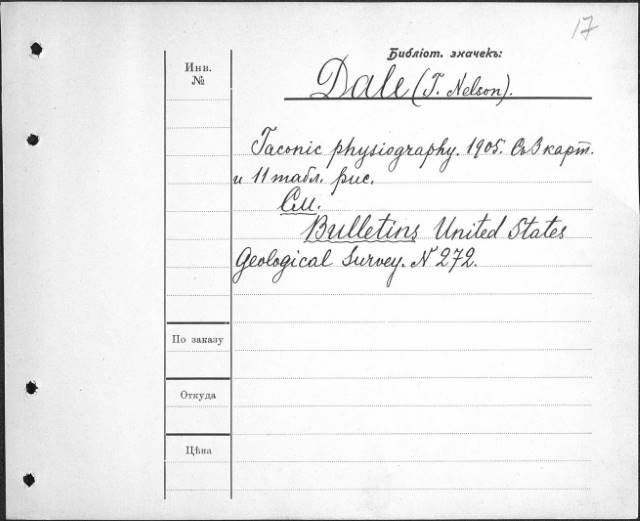 17
Библіот. значекъ:
Инв.
№
Dale (T. Nelson).
Taconic physiography. 1905. Съ 3 карт.
и 11 табл. рис.
См.
Bulletins United States
Geological Survey. N 272.
По заказу
Откуда
Цѣна